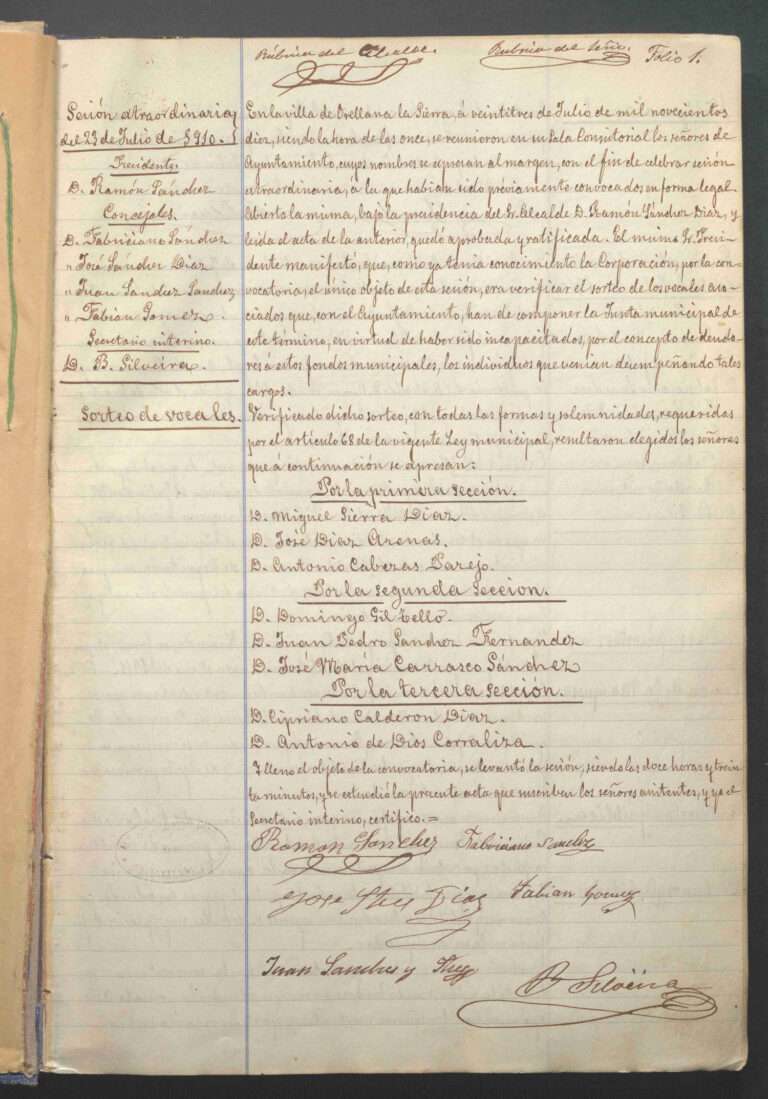 Rúbrica del Alcalde. Rubrica del Señ. Folio 1.
Sesion extraordinaria
del 23 de Julio de 1910.
Presidente
D. Ramón Sánchez
Concejales.
D. Fabriciano Sánchez
" José Sánchez Diaz
" Juan Sanchez Sanchez
" Fabian Gomez.
Secretario interino.
D. B. Silveira.
Sorteo de vocales.
En la villa de Orellana la Sierra, á veintitres de Julio de mil novecientos
diez, siendo la hora de las once, se reunieron en su Sala Consistorial los señores de
Ayuntamiento, cuyos nombres se expresan al margen, con el fin de celebrar sesión
extraordinaria, á la que habian sido préviamente convocados en forma legal.
Abierta la misma, bajo la presidencia del Sr. Alcalde D. Ramón Sánchez Diaz, y
leida el acta de la anterior, quedó aprobada y ratificada. El mismo Sr. Presi-
dente manifestó, que, como ya tenia conocimiento la Corporación, por la con-
vocatoria, el único objeto de esta sesión, era verificar el sorteo de los vocales aso-
ciados que, con el Ayuntamiento, han de componer la Junta municipal de
este término, en virtud de haber sido incapacitados, por el concepto de deudo-
res á estos fondos municipales, los individuos que venian desempeñando tales
cargos.
Verificado dicho sorteo, con todas las formas y solemnidades, requeridas
por el artículo 68 de la vigente Ley municipal, resultaron elegidos los señores
que á continuación se expresan:
Por la primera sección.
D. Miguel Sierra Diaz.
D. José Diaz Arenas.
D. Antonio Cabezas Parejo.
Por la segunda seccion.
D. Domingo Gil Tello.
D. Juan Pedro Sanchez Fernandez
D. José María Carrasco Sánchez
Por la tercera sección.
D. Cipriano Calderon Diaz.
D. Antonio de Dios Corraliza.
Y lleno el objeto de la convocatoria, se levantó la sesión, siendo las doce horas y trein
ta minutos, y se extendió la presente acta que suscriben los señores asistentes, y yo el
Secretario interino, certifico.=
Ramon Sanchez Fabriciano Sanchez
Jose Shez Díaz Fabian Gomez
Juan Sanchez y Shez
B Silveira